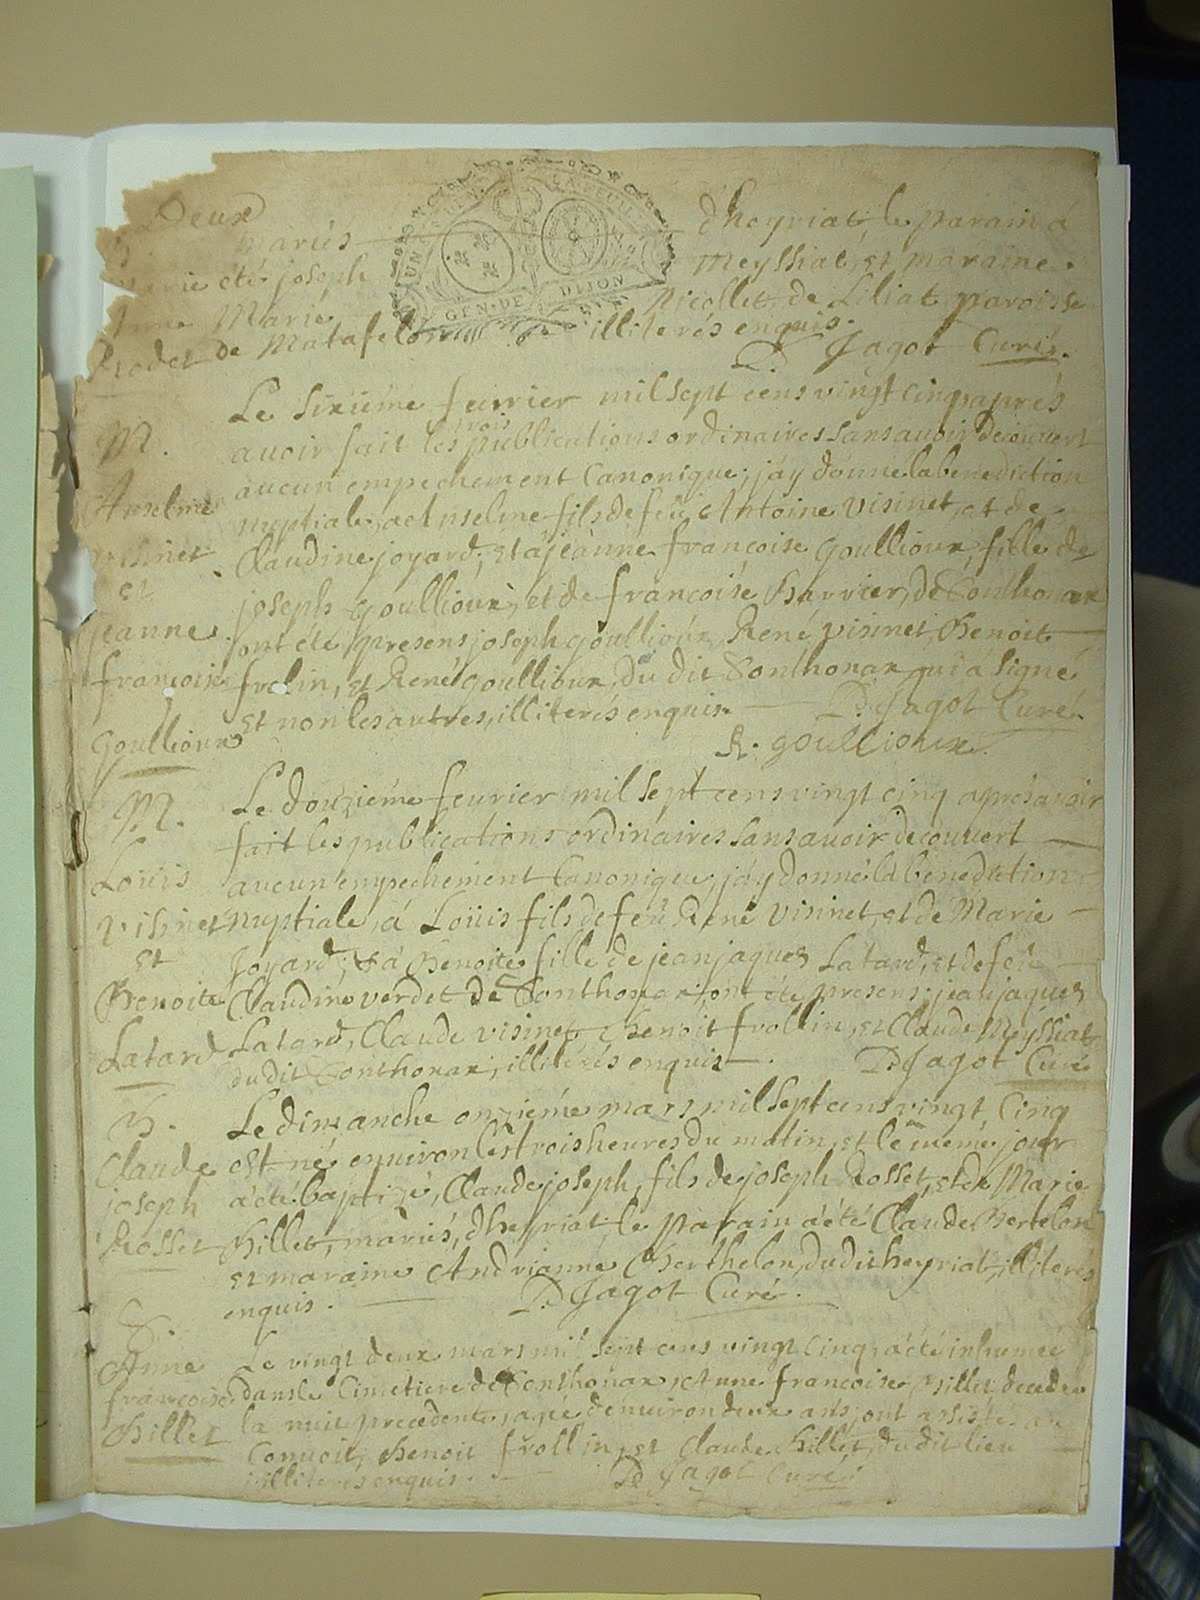 Deux
mariés dheyriat, le parain à
marie été joseph Meyssiat, et maraine
Anne Marie Nicollet de Liliat paroisse
UN GEN·DE DIJON
de Matafelon illiterés enquis.
D. Jagot Curé.
M.
Anselme
visinet
et
jeanne
françoise
Goullioux
Le sixiéme feuvrier mil sept cens vingt cinq aprés
avoir fait les trois publications ordinaires sans avoir decouvert
aucun empechement Canonique, j'ay donné la benediction
nuptiale, a Anselme fils de feu Antoine visinet, et de
Claudine joyard, et à jeanne françoise Goullioux, fille de
joseph Goullioux, et de françoise Barrier, de Sonthonax
ont été presens joseph goullioux, René visinet, Benoit
frolin, et René goullioux, du dit Sonthonax qui a signé
et non les autres, illiterés enquis. D. Jagot Curé.
R. goullioux
M.
Loüis
visinet
et
Benoite
Latard
Le douziéme feurier mil sept cens vingt cinq aprés avoir
fait les publications ordinaires sans avoir decouvert
aucun empechement Canonique, j'ay donné la benediction
nuptiale, à Loüis fils de feu René visinet, et de Marie
Joyard, & à Benoite fille de jean jaques Latard, et de feüe
Claudine verdet de Sonthonax, ont été presens jean jaques
Latard, Claude visinet, Benoit frollin, et Claude Meyssiat
du dit Sonthonax, illiterés enquis. D. Jagot Curé
B.
Claude
joseph
Rosset
Le dimanche onziéme mars mil sept cens vingt cinq
est né environ les trois heures du matin, et le même jour
a été baptizé, Claude joseph, fils de joseph Rosset, et de Marie
Billet, mariés, dheyriat, le parain a été Claude Bertelon
et maraine Andrianne Berthelon, du dit heyriat, illiterés
enquis. D. Jagot Curé.
S.
Anne
françoise
Billet
Le vingt deux mars mil sept cens vingt cinq a été inhumée
dans le Cimetiere de Sonthonax, Anne françoise Billet decedée
la nuit precedente, agée d'environ deux ans, ont assisté au
Convoit, Benoit frollin, et Claude Billet, du dit lieu
illiterés enquis. D. Jagot Curé